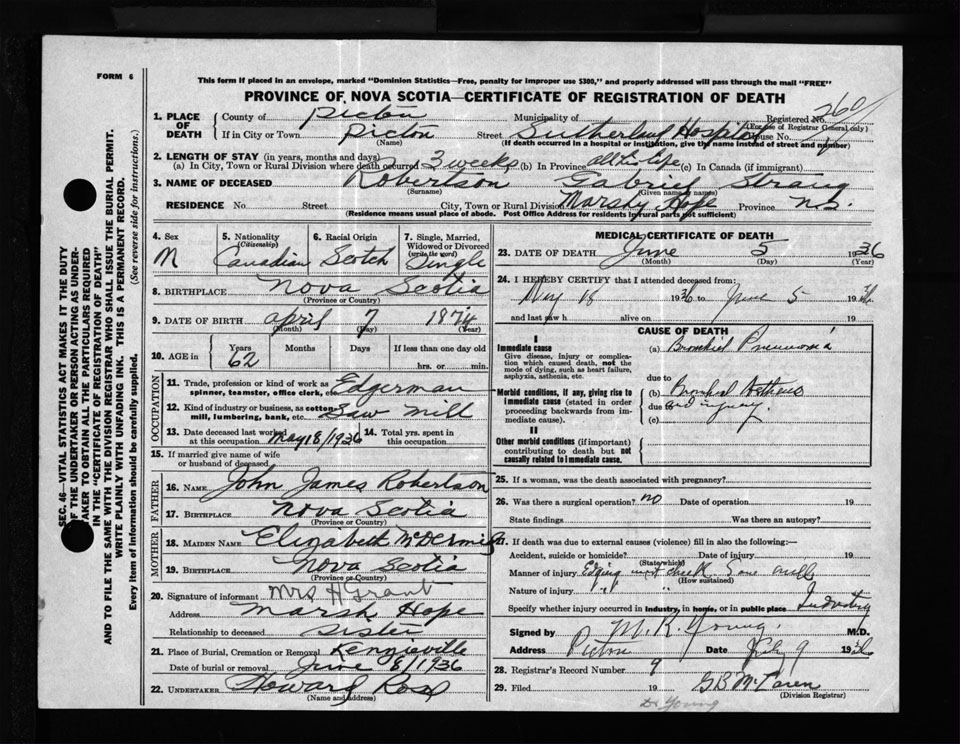 FORM 6
This form if placed in an envelope, marked "Dominion Statistics—Free, penalty for improper use $300," and properly addressed will pass through the mail "FREE"
PROVINCE OF NOVA SCOTIA—CERTIFICATE OF REGISTRATION OF DEATH
SEC. 46—VITAL STATISTICS ACT MAKES IT THE DUTY
OF THE UNDERTAKER OR PERSON ACTING AS UNDER-
TAKER TO OBTAIN ALL THE PARTICULARS REQUIRED
IN THE "CERTIFICATE OF REGISTRATION OF DEATH"
AND TO FILE THE SAME WITH THE DIVISION REGISTRAR WHO SHALL ISSUE THE BURIAL PERMIT.
WRITE PLAINLY WITH UNFADING INK. THIS IS A PERMANENT RECORD.
Every item of information should be carefully supplied. (See reverse side for instructions.)
1. PLACE OF DEATH County of Picton Municipality of Registered No. 260
(For use of Registrar General only)
If in City or Town Picton Street Sutherland Hospital House No.
(Name) (If death occurred in a hospital or institution, give the name instead of street and number)
2. LENGTH OF STAY (in years, months and days)
(a) In City, Town or Rural Division where death occurred 3 weeks (b) In Province all his life (c) In Canada (if immigrant)
3. NAME OF DECEASED Robertson Gabriel Strang
(Surname) (Given name or names)
RESIDENCE No. Street City, Town or Rural Division Marshy Hope Province N.S.
(Residence means usual place of abode. Post Office Address for residents in rural parts not sufficient)
4. Sex M
5. Nationality (Citizenship) Canadian
6. Racial Origin Scotch
7. Single, Married, Widowed or Divorced (write the word) Single
8. BIRTHPLACE Nova Scotia
(Province or Country)
9. DATE OF BIRTH April 7 1874
(Month) (Day) (Year)
10. AGE in Years Months Days If less than one day old
62 hrs. or min.
OCCUPATION
11. Trade, profession or kind of work as spinner, teamster, office clerk, etc. Edgerman
12. Kind of industry or business, as cotton mill, lumbering, bank, etc. Saw Mill
13. Date deceased last worked at this occupation May 18/1936 14. Total yrs. spent in this occupation
15. If married give name of wife or husband of deceased
FATHER
16. NAME John James Robertson
17. BIRTHPLACE Nova Scotia
(Province or Country)
MOTHER
18. MAIDEN NAME Elizabeth McDermigh
19. BIRTHPLACE Nova Scotia
(Province or Country)
20. Signature of informant Mrs H Grant
Address Marsh Hope
Relationship to deceased Sister
21. Place of Burial, Cremation or Removal Kenzieville
Date of burial or removal June 8/1936
22. UNDERTAKER Howard Ross
(Name and address)
MEDICAL CERTIFICATE OF DEATH
23. DATE OF DEATH June 5 1936
(Month) (Day) (Year)
24. I HEREBY CERTIFY that I attended deceased from:
May 18 1936 to June 5 1936
and last saw h alive on 19
CAUSE OF DEATH
I
Immediate cause
Give disease, injury or complication which caused death, not the mode of dying, such as heart failure, asphyxia, asthenia, etc.
(a) Bronchial Pneumonia
due to
Morbid conditions, if any, giving rise to immediate cause (stated in order proceeding backwards from immediate cause).
(b) Bronchial Asthma
due to and injury.
(c)
II
Other morbid conditions (if important) contributing to death but not causally related to immediate cause.
25. If a woman, was the death associated with pregnancy?
26. Was there a surgical operation? no Date of operation 19
State findings Was there an autopsy?
27. If death was due to external causes (violence) fill in also the following:—
Accident, suicide or homicide? Date of injury 19
(State which)
Manner of injury Edging
(How sustained)
Nature of injury " "
Specify whether injury occurred in industry, in home, or in public place Industry
Signed by M. K. Young. M.D.
Address Picton Date July 9 1936
28. Registrar's Record Number 9
29. Filed 19 G B McLaren
(Division Registrar)
Dr Young